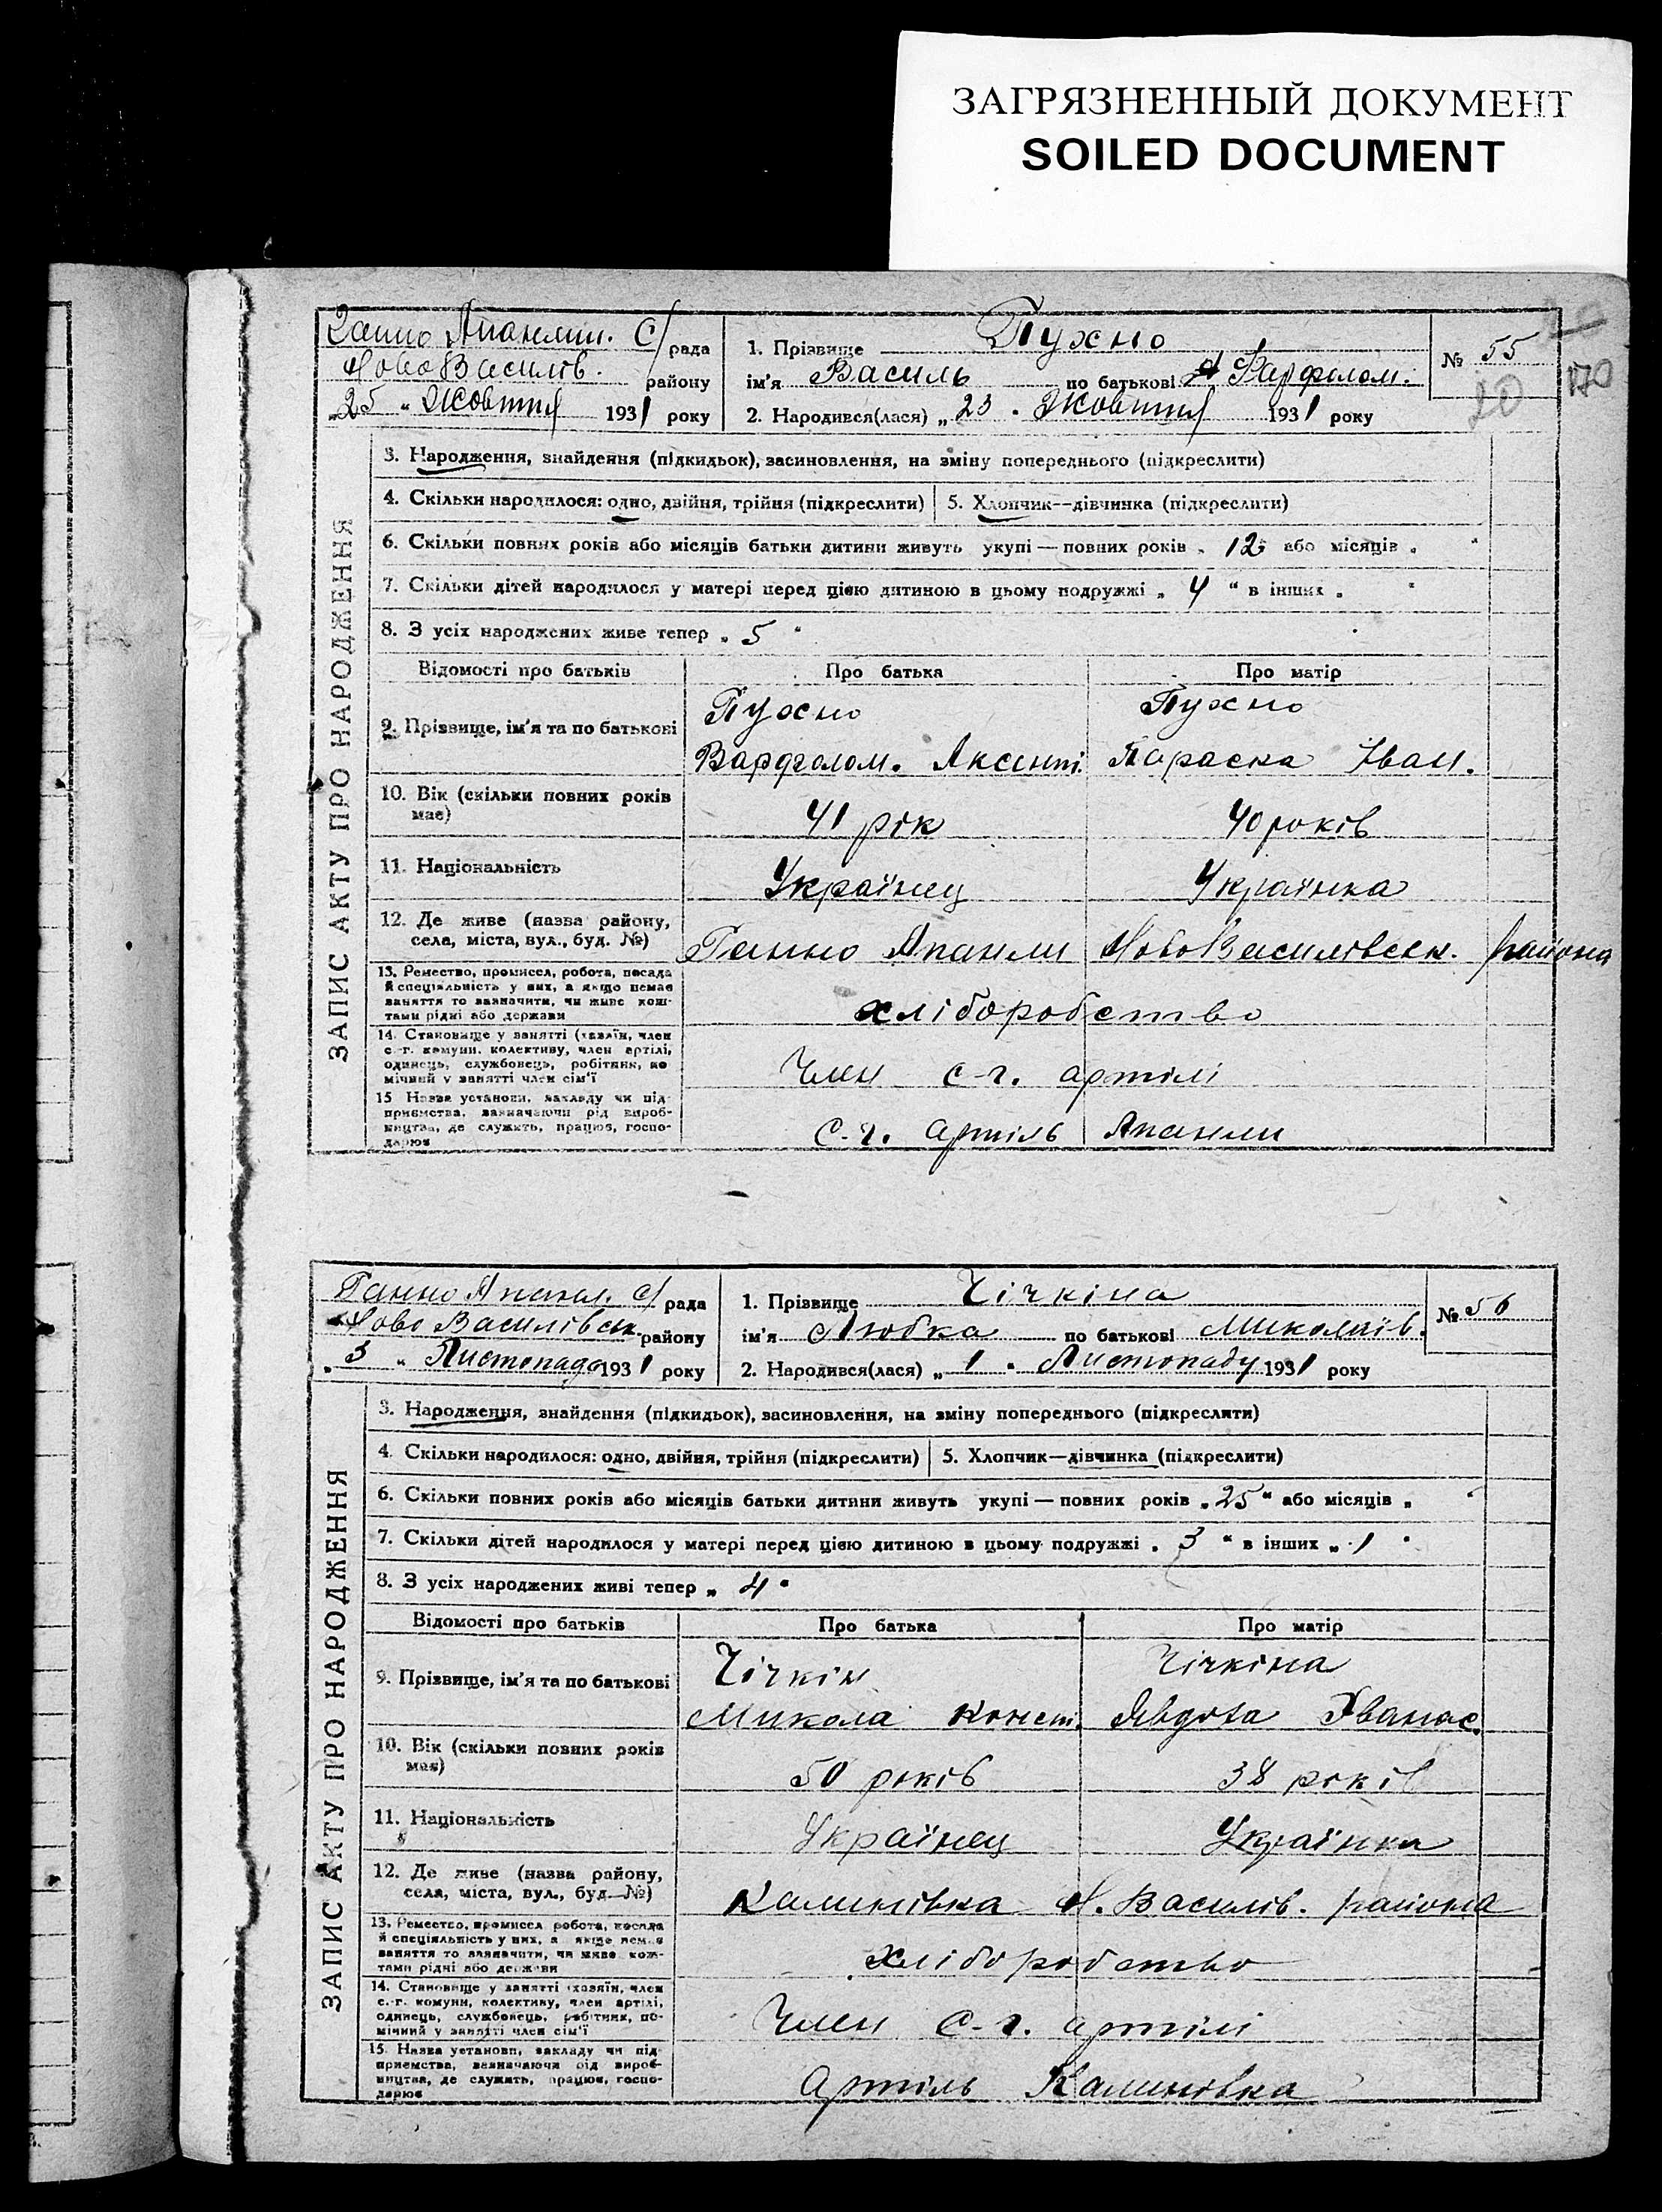 ЗАГРЯЗНЕННЫЙ ДОКУМЕНТ
SOILED DOCUMENT
Ганно Апанлин. С/рада
НовоВасилів. району
„25" Жовтня 1931 року
1. Прізвище Пухно
ім'я Василь по батькові Варфолом.
2. Народився(лася) „23" Жовтня 1931 року
№ 55
20
170
ЗАПИС АКТУ ПРО НАРОДЖЕННЯ
3. Народження, знайдення (підкидьок), засиновлення, на зміну попереднього (підкреслити)
4. Скільки народилося: одно, двійня, трійня (підкреслити) 5. Хлопчик—дівчинка (підкреслити)
6. Скільки повних років або місяців батьки дитини живуть укупі — повних років „12" або місяців „ "
7. Скільки дітей народилося у матері перед цією дитиною в цьому подружжі „4" в інших „ "
8. З усіх народжених живе тепер „5"
Відомості про батьків Про батька Про матір
9. Прізвище, ім'я та по батькові
Пухно Пухно
Варфолом. Аксенті. Параска Іван.
10. Вік (скільки повних років має)
41 рік 40 років
11. Національність
Українец Українка
12. Де живе (назва району,
села, міста, вул., буд. №)
Ганно Апанли НовоВасилівськ. района
13. Ремество, промисел, робота, посада
й спеціяльність у них, а якщо немає
заняття то зазначити, чи живе кош-
тами рідні або держави
хліборобство
14. Становище у занятті (хазяїн, член
с.-г. комуни, колективу, член артілі,
одинець, службовець, робітник, по
мічний у занятті член сім'ї
Член с-г. артілі
15 Назва установи, закладу чи під-
приємства, зазначаючи рід вироб-
ництва, де служить, працює, госпо-
дарює
С.-г. артіль Апанли
Ганно Апанл. с/рада
Ново Василівськ. району
„3" Листопада 1931 року
1. Прізвище Чічкіна
ім'я Любка по батькові Миколаїв.
2. Народився(лася) „1" Листопаду 1931 року
№ 56
ЗАПИС АКТУ ПРО НАРОДЖЕННЯ
3. Народження, знайдення (підкидьок), засиновлення, на зміну попереднього (підкреслити)
4. Скільки народилося: одно, двійня, трійня (підкреслити) 5. Хлопчик—дівчинка (підкреслити)
6. Скільки повних років або місяців батьки дитини живуть укупі — повних років „25" або місяців „ "
7. Скільки дітей народилося у матері перед цією дитиною в цьому подружжі „3" в інших „1"
8. З усіх народжених живі тепер „4"
Відомості про батьків Про батька Про матір
9. Прізвище, ім'я та по батькові
Чічкін Чічкіна
Микола Конст. Явдоха Хванас.
10. Вік (скільки повних років має)
50 років 38 років
11. Національність
Українец Українка
12. Де живе (назва району,
села, міста, вул., буд. №)
Калинівка Н. Василів. района
13. Ремество, промисел робота, посада
й спеціяльність у них, а якщо немає
заняття то зазначити, чи живе кош-
тами рідні або держави
Хліборобство
14. Становище у занятті (хазяїн, член
с.-г. комуни, колективу, член артілі,
одинець, службовець, робітник, по-
мічний у занятті член сім'ї
Член с-г. артілі
15. Назва установи, закладу чи під
приємства, зазначаючи рід вироб-
ництва, де служить, працює, госпо-
дарює
Артіль Калинівка